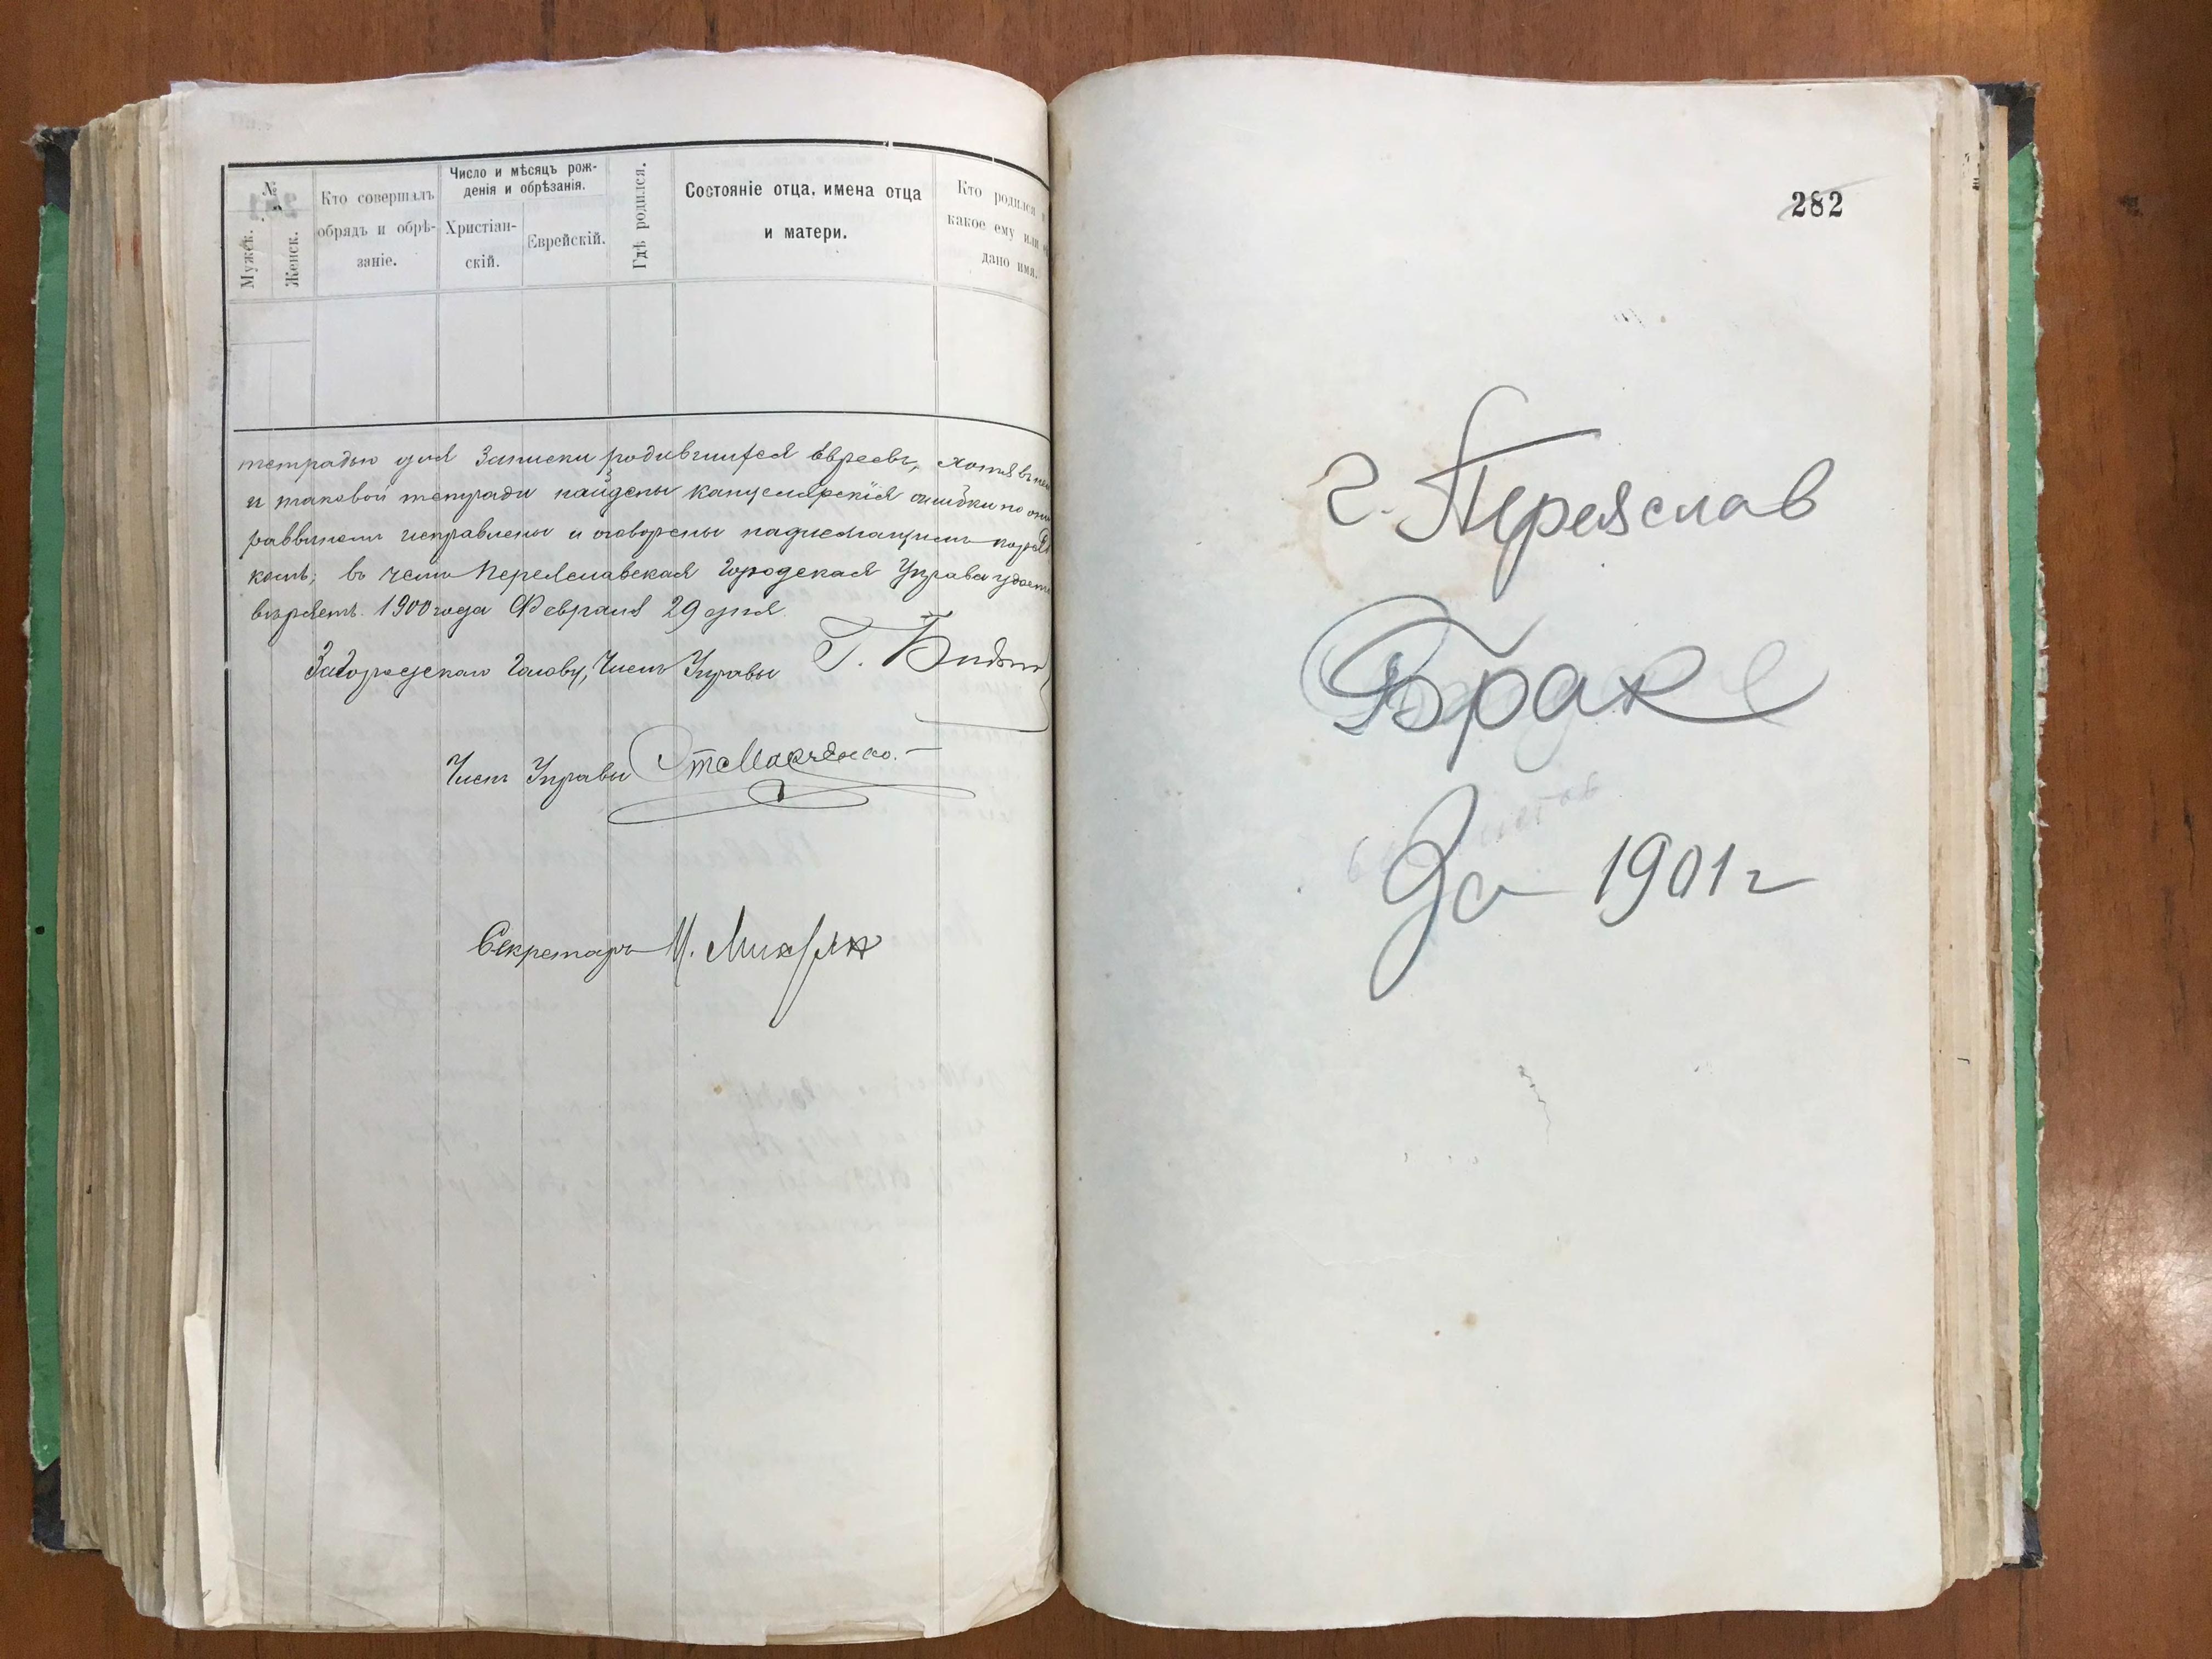 №
Мужск.
Женск.
Кто совершалъ
обрядъ и обрѣ-
заніе.
Число и мѣсяцъ рож-
денія и обрѣзанія.
Христіан-
скій.
Еврейскій.
Гдѣ родился.
Состояніе отца, имена отца
и матери.
Кто родился и
какое ему или
дано имя.
тетрадью для записки родившихся Евреевъ, хотя въ
и таковой тетради найдены канцелярскія ошибки но
раввиномъ исправлены и оговорены надлежащимъ
комъ; въ чемъ Переяславская Городская Управа
вѣряетъ. 1900 года Февраля 29 дня.
За Городскаго Голову, Членъ Управы
Членъ Управы
Секретарь
282
г. Переяслав
Браке
За 1901 г